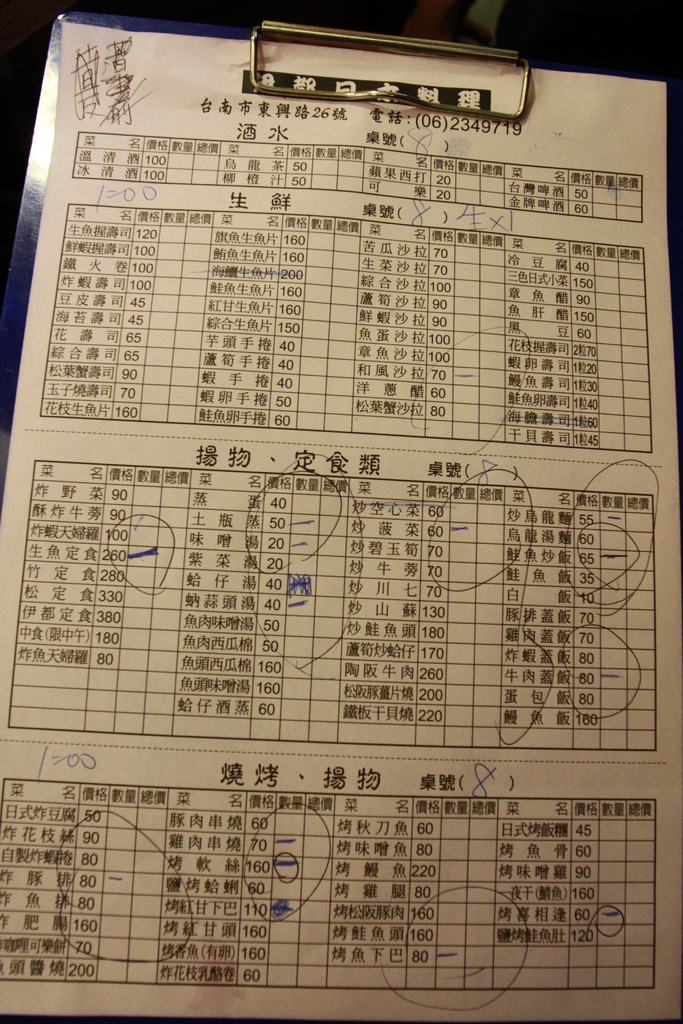 日本料理
台南市東興路26號 電話:(06)2349719
酒水 桌號( 8 )
菜名 價格 數量 總價 菜名 價格 數量 總價 菜名 價格 數量 總價 菜名 價格 數量 總價
溫清酒 100 烏龍茶 50 蘋果西打 20 台灣啤酒 50
冰清酒 100 柳橙汁 50 可樂 20 金牌啤酒 60
1=00 生鮮 桌號( 8 ) 4x1
菜名 價格 數量 總價 菜名 價格 數量 總價 菜名 價格 數量 總價 菜名 價格 數量 總價
生魚握壽司 120 旗魚生魚片 160 苦瓜沙拉 70 冷豆腐 40
鮮蝦握壽司 100 鮪魚生魚片 160 生菜沙拉 70 三色日式小菜 150
鐵火卷 100 海鱺生魚片 200 綜合沙拉 100 章魚醋 90
炸蝦壽司 100 鮭魚生魚片 160 蘆筍沙拉 90 魚肝醋 150
豆皮壽司 45 紅甘生魚片 160 鮮蝦沙拉 90 黑豆 60
海苔壽司 45 綜合生魚片 150 魚蛋沙拉 100 花枝握壽司 2粒70
花壽司 65 芋頭手捲 40 章魚沙拉 100 蝦卵壽司 1粒20
綜合壽司 65 蘆筍手捲 40 和風沙拉 70 鰻魚壽司 1粒30
松葉蟹壽司 90 蝦手捲 40 洋蔥醋 60 鮭魚卵壽司 1粒40
玉子燒壽司 70 蝦卵手捲 50 松葉蟹沙拉 80 海膽壽司 1粒60
花枝生魚片 160 鮭魚卵手捲 60 干貝壽司 1粒45
揚物、定食類 桌號( 8 )
菜名 價格 數量 總價 菜名 價格 數量 總價 菜名 價格 數量 總價 菜名 價格 數量 總價
炸野菜 90 蒸蛋 40 炒空心菜 60 炒烏龍麵 55
酥炸牛蒡 90 土瓶蒸 50 炒菠菜 60 烏龍湯麵 60
炸蝦天婦羅 100 味噌湯 20 炒碧玉筍 70 鮭魚炒飯 65
生魚定食 260 紫菜湯 20 炒牛蒡 70 鮭魚飯 35
竹定食 280 蛤仔湯 40 炒川七 70 白飯 10
松定食 330 蚋蒜頭湯 40 炒山蘇 130 豚排蓋飯 70
伊都定食 380 魚肉味噌湯 50 炒鮭魚頭 180 雞肉蓋飯 70
中食(限中午) 180 魚肉西瓜棉 50 蘆筍炒蛤仔 170 炸蝦蓋飯 80
炸魚天婦羅 80 魚頭西瓜棉 160 陶阪牛肉 260 牛肉蓋飯 80
魚頭味噌湯 160 松阪豚薑片燒 200 蛋包飯 80
蛤仔酒蒸 60 鐵板干貝燒 220 鰻魚飯 160
1=00 燒烤、揚物 桌號( 8 )
菜名 價格 數量 總價 菜名 價格 數量 總價 菜名 價格 數量 總價 菜名 價格 數量 總價
日式炸豆腐 50 豚肉串燒 60 烤秋刀魚 60 日式烤飯糰 45
炸花枝絲 90 雞肉串燒 70 烤味噌魚 80 烤魚骨 60
自製炸蝦捲 80 烤軟絲 160 烤鰻魚 220 烤味噌雞 90
炸豚排 80 鹽烤蛤蜊 60 烤雞腿 80 一夜干(鯖魚) 160
炸魚排 80 烤紅甘下巴 110 烤松阪豚肉 160 烤喜相逢 60
炸肥腸 160 烤紅甘頭 160 烤鮭魚頭 160 鹽烤鮭魚肚 120
咖哩可樂餅 70 烤香魚(有卵) 160 烤魚下巴 80
魚頭醬燒 200 炸花枝乳酪卷 60